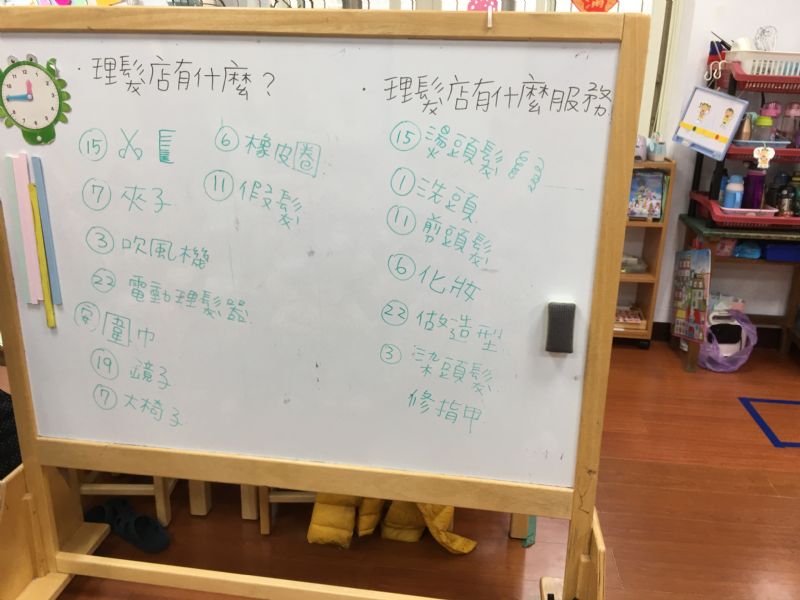 ·理髮店有什麼?
⑮ 剪
⑦ 夾子
③ 吹風機
㉒ 電動理髮器
安 圍巾
⑲ 鏡子
⑦ 大椅子
⑥ 橡皮圈
⑪ 假髮
·理髮店有什麼服務
⑮ 燙頭髮
① 洗頭
⑪ 剪頭髮
⑥ 化妝
㉒ 做造型
③ 染頭髮
修指甲